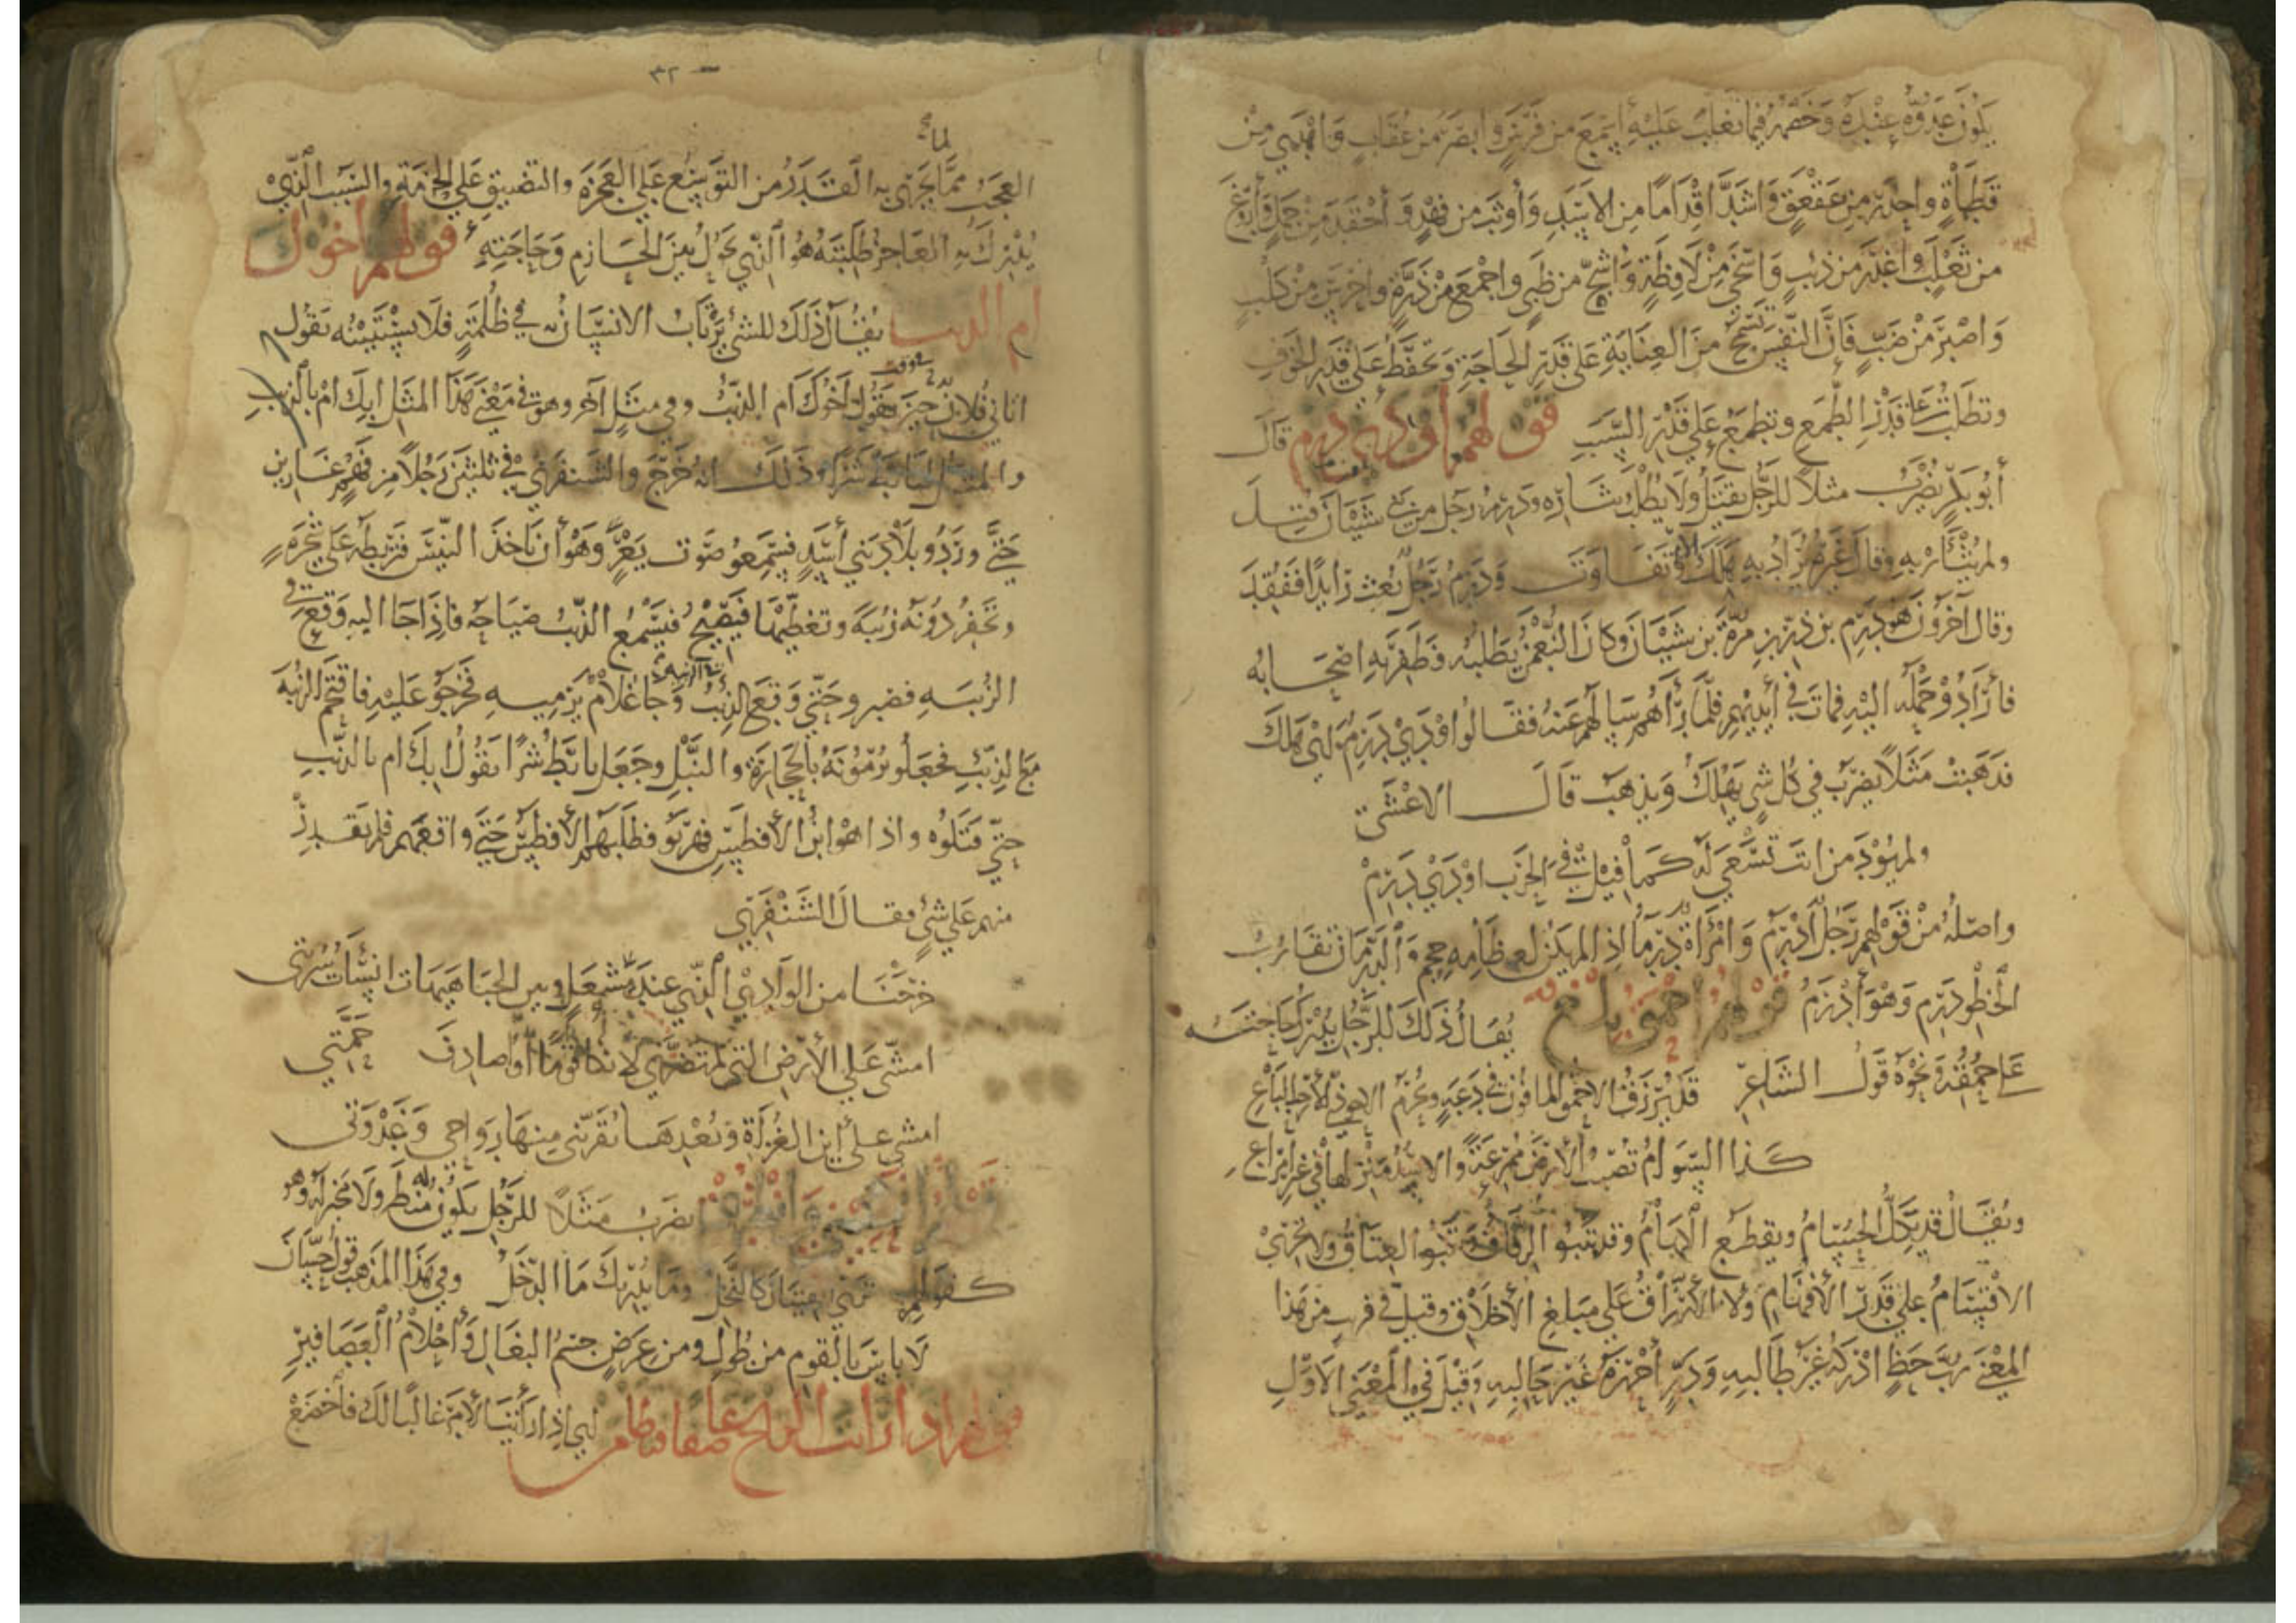 يكون عدوه عنده وخصمه فيما تغلب عليه اسمع من فرس وابصر من عقاب واهدي من
قطاة واحذر من عقعق واشد اقداما من الاسد واوثب من فهد واحقد من جمل واروغ
من ثعلب واغدر من ذئب واسخي من لافظة واشح من ظبي واجمع من ذرة واحرس من كلب
واصبر من ضب فان النفس تسمح من العناية على قدر الحاجة وتحفظ على قدر الخوف
وتطلب على قدر الطمع وتطمع على قدر السبب قولهم اودي درم قال
أبو بكر يضرب مثلا للرجل يقتل ولا يطلب بثاره ودرم رجل من بني شيبان قتل
ولم يثار به وقال غيره يراد به هلك وتفاوت ودرم رجل بعث رايدا ففقد
وقال آخرون هو درم بن درب بن مرة بن شيبان وكان النعمن يطلبه فظفر به اصحابه
فأرادو حمله اليه فمات في أيديهم فلما رآهم سالهم عنه فقالوا اودي درم اي هلك
فذهبت مثلا يضرب في كل شي يهلك ويذهب قال الاعشى
ولم يود من انت تسعى له كما قيل في الحرب اودي درم
واصله من قولهم رجل ادرم وامرأة درما اذا لم يكن لعظامه حجم والدرمان تقارب
الخطو درم وهو أدرم قولهم احمق بلغ يقال ذلك للرجل يدرك حاجته
على حمقه ونحوه قول الشاعر قد يرزق الاحمق المافون في دعة ويحرم الاحوذي الأرحب الباع
كذا السوام تصيب الارض ممرعة والاسد منزلها في غير امراع
ويقال قد يكل الحسام ويقطع الكهام وقد تنبو الرقاق تنبو العتاق ولا تجري
الاقسام على قدر الأفهام ولا الارزاق على مبلغ الأخلاق وقيل في قرب من هذا
المعنى رب حظ ادركه غير طالبه ودر احرزه غير حالبه وقيل في المعنى الاول
٣٢
لما
العجب مما يجري به القدر من التوسيع على العجزة والتضييق على الحزمة والسبب الذي
يدرك به العاجز طلبته هو الذي يحول بين الحازم وحاجته قولهم اخوك
ام الذيب يقال ذلك للشي يرتاب الانسان به في ظلمة فلا يستبينه تقول
اتاني فلان حين تقول اخوك ام الذئب وفي مثل آخر وهو في معنى هذا المثل ابك ام بالذيب
والمثل لتابط شرا وذلك انه خرج والشنفري في ثلثين رجلا من فهم غازين
حتى وردو بلاد بني أسد فسمعو صوت يعر وهو أن تاخذ التيس فتربطه على شجرة
وتحفر دونه زبية وتغطيها فيصيح فيسمع الذئب صياحه فاذا جا اليه وقع في
الزبية فصبرو حتى وقع الذئب وجا غلام يرميه فخرجو عليه فاقتحم الزبية
مع الذئب فجعلو يرمونه بالحجارة والنبل وجعل تابط شرا يقول ابك ام بالذئب
حتى قتلوه واذا هو ابن الأفطس فهربو فطلبهم الأفطس حتى واقعهم فلم يقدر
منهم على شئ فقال الشنفري
خرجنا من الوادي الذي عند مشعل وبين الجبا هيهات انسات سربتي
امشي على الأرض التي لم تضرني لانكا قوما أو اصادف حمتي
امشي على أين الغزاة وبعدها يقربني منها رواحي وغدوتي
يضرب مثلا للرجل يكون له منظر ولا مخبر له وهو
كقولهم ترى الفتيان كالنخل وما يدريك ما الدخل وفي هذا المذهب قول حسان
لا باس بالقوم من طول ومن عرض جسم البغال وأحلام العصافير
قولهم اذا رأيت الريح عاصفا فتطامن اي اذا رأيت الأمر غالبا لك فاخضع